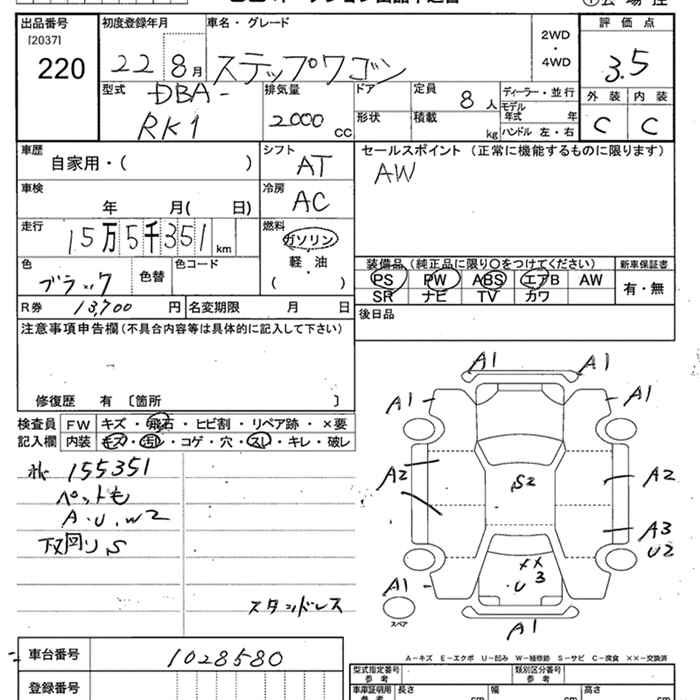 出品番号
[2037]
220
初度登録年月
22 8月
車名・グレード
ステップワゴン
2WD
・
4WD
評価点
3.5
外装 内装
C C
型式
DBA-
RK1
排気量
2000 CC
ドア
形状
定員
8人
積載
kg
ディーラー・並行
モデル年式 年
ハンドル 左・右
車歴
自家用・( )
シフト
AT
セールスポイント (正常に機能するものに限ります)
AW
車検
年 月( 日)
冷房
AC
走行
15万5千351 km
燃料
ガソリン
軽・油
( )
色
ブラック
色替
色コード
装備品 (純正品に限り○をつけてください)
PS PW ABS エアB AW
SR ナビ TV カワ
新車保証書
有・無
R券 13,700円
名変期限 月 日
後日品
注意事項申告欄(不具合内容等は具体的に記入して下さい)
修復歴 有 〔箇所 〕
検査員 FW キズ・飛石・ヒビ割・リペア跡・×要
記入欄 内装 キズ・汚レ・コゲ・穴・スレ・キレ・破レ
155351
ペットも
A.U.W2
下廻りS
スタッドレス
A1 A1
A1 A1
A2 S2 A2
A3
U2
××
.U3
A1
A1
スペア
A-キズ E-エクボ U-凹み W-補修跡 S-サビ C-腐食 ××-交換済
車台番号 1028580
登録番号
型式指定番号
参考
類別区分番号
参考
車庫証明用
参考
長さ cm
幅 cm
高さ cm